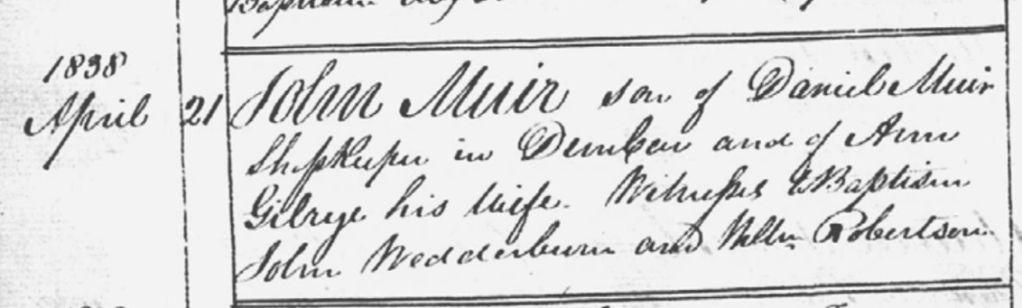 1838
April 21 John Muir son of Daniel Muir
Shopkeeper in Dunbar and of Ann
Gilrye his Wife. Witnesses to Baptism
John Wedderburn and Willm Robertson